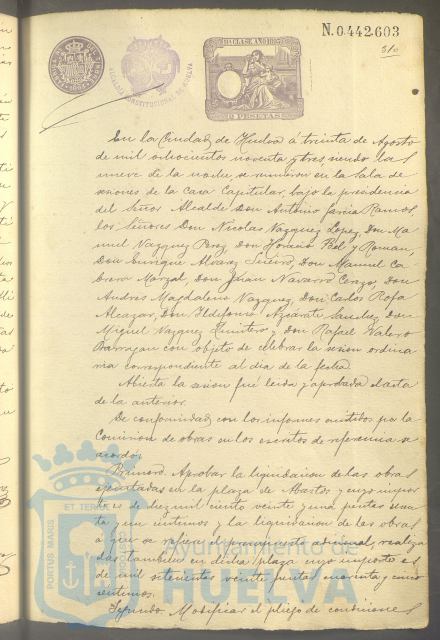 N.0.442.603
310
11ª CLASE AÑO 1893
ALCALDIA CONSTITUCIONAL DE HUELVA
PESETAS
En la Ciudad de Huelva á treinta de Agosto
de mil ochocientos noventa y tres siendo las
nueve de la noche, se reunieron en la Sala de
sesiones de la Casa Capitular, bajo la presidencia
del Señor Alcalde Don Antonio Garcia Ramos,
los Señores Don Nicolas Vazquez Lopez, Don Ma-
nuel Vazquez Perez, Don Horacio Bel y Roman,
Don Enrique Alvarez Sueiro, Don Manuel Ca-
brera Marzal, Don Juan Navarro Cerezo, Don
Andrés Magdaleno Vazquez, Don Carlos Rofa
Alcazar, Don Ildefonso Azcárate Sanchez, Don
Miguel Vazquez Quintero y Don Rafael Valero
Barragan con objeto de celebrar la sesion ordina-
ria correspondiente al dia de la fecha.
Abierta la sesion fué leida y aprobada el acta
de la anterior.
De conformidad con los informes emitidos por la
Comision de obras en los escritos de referencia se
acordó:
Primero. Aprobar la liquidacion de las obras
ejecutadas en la plaza de Abastos y cuyo impor-
te es de mil ciento veinte y una pesetas
ta y un centimos y la liquidacion de las obras
á que se refiere el presupuesto adicional, realiza-
das tambien en dicha plaza cuyo importe es
de mil setecientas veinte pesetas cuarenta y cinco
centimos.
Segundo. Modificar el pliego de condiciones
PORTUS MARIS
ET TERRAE
CUSTODIA
Ayuntamiento de
HUELVA